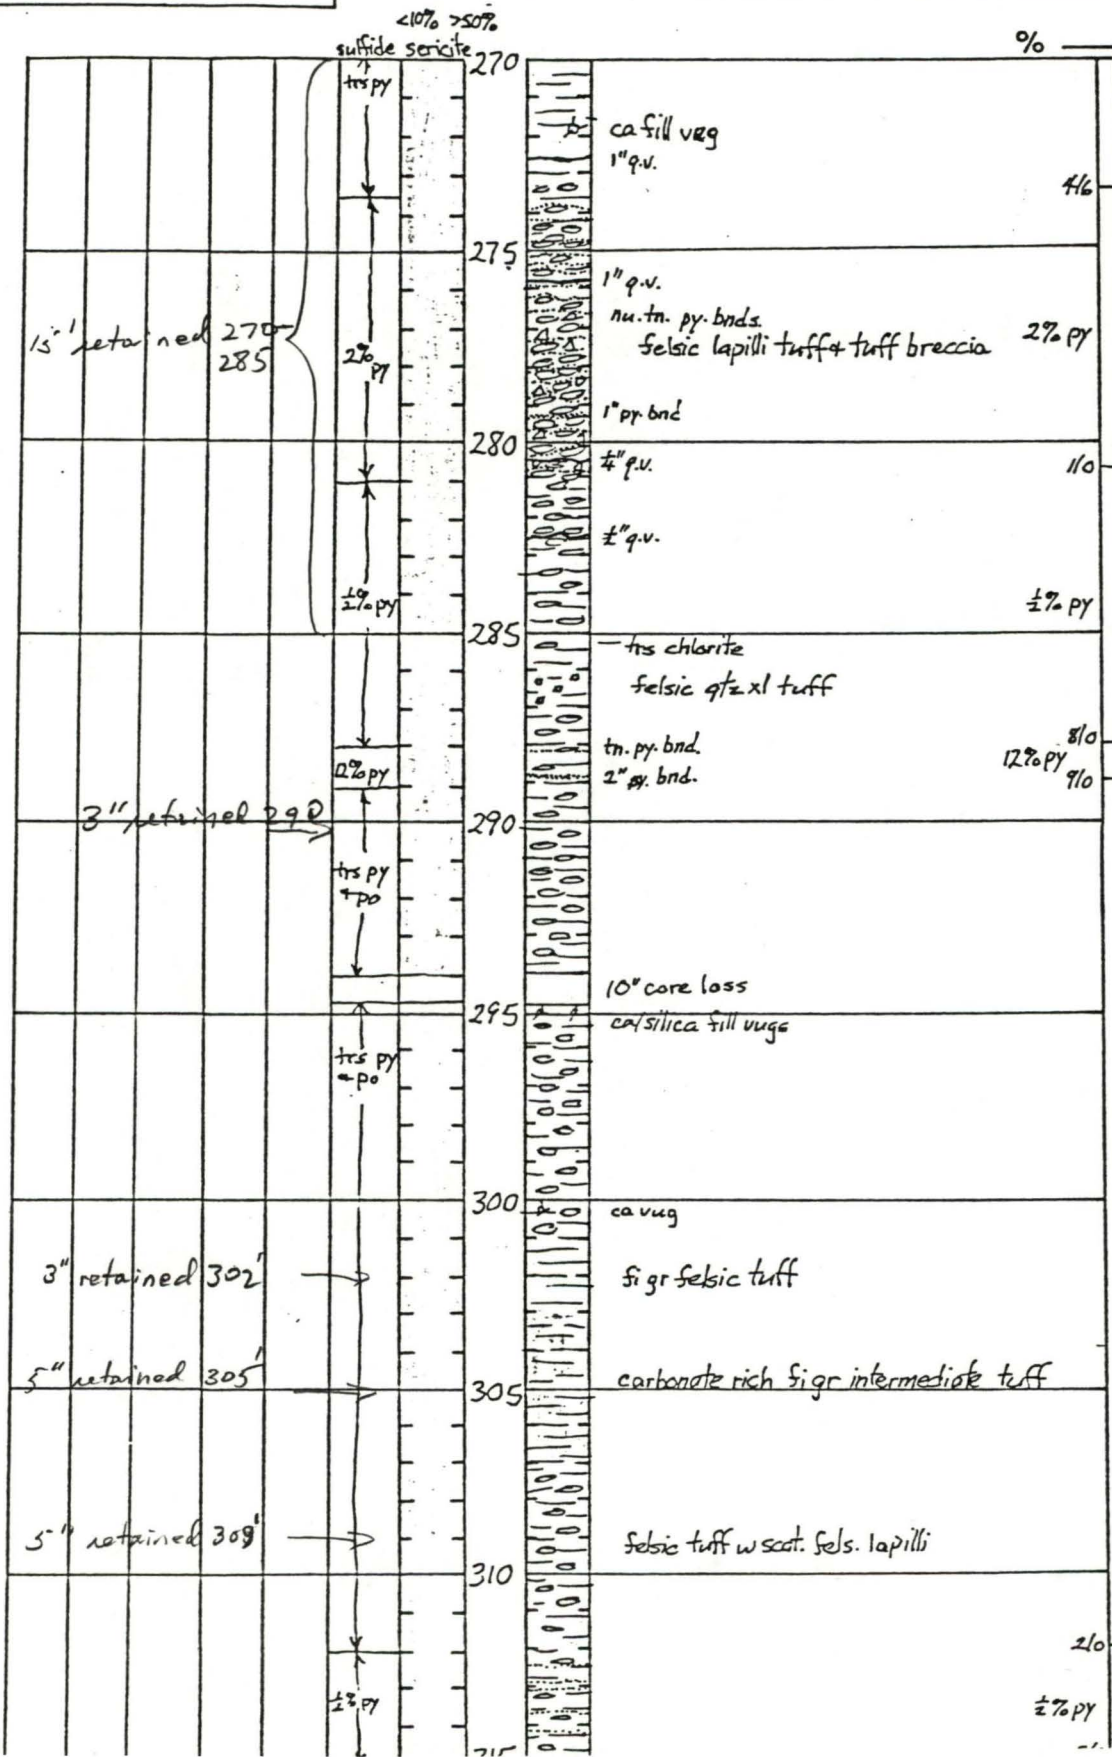 <10% >50%
sulfide sericite
% 
270
trs py
ca fill vug
1" q.v.
4/6
275
1" q.v.
nu. tn. py. bnds.
felsic lapilli tuff & tuff breccia
2% py
15' retained 270-
285
2% py
1" py. bnd
280
¼" q.v.
1/0
½" q.v.
½% py
½% py
285
trs chlorite
felsic qtz xl tuff
8/0
tn. py. bnd.
12% py
12% py
2" py. bnd.
9/0
3" retained 290
290
trs py
+po
10" core loss
295
ca/silica fill vugs
trs py
+po
300
ca vug
3" retained 302'
fi gr felsic tuff
5" retained 305'
305
carbonate rich fi gr intermediate tuff
5" retained 309'
felsic tuff w scat. fels. lapilli
310
2/0
½% py
½% py
315